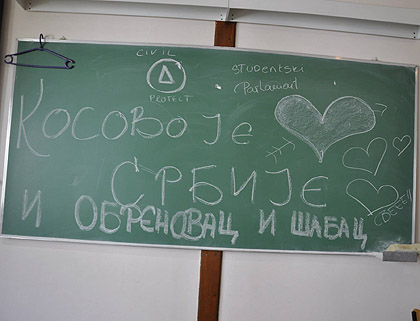 CIVIL
PROTECT
STUDENTSKI
Parlament
КОСОВО ЈЕ
СРБИЈЕ
И ОБРЕНОВАЦ И ШАБАЦ